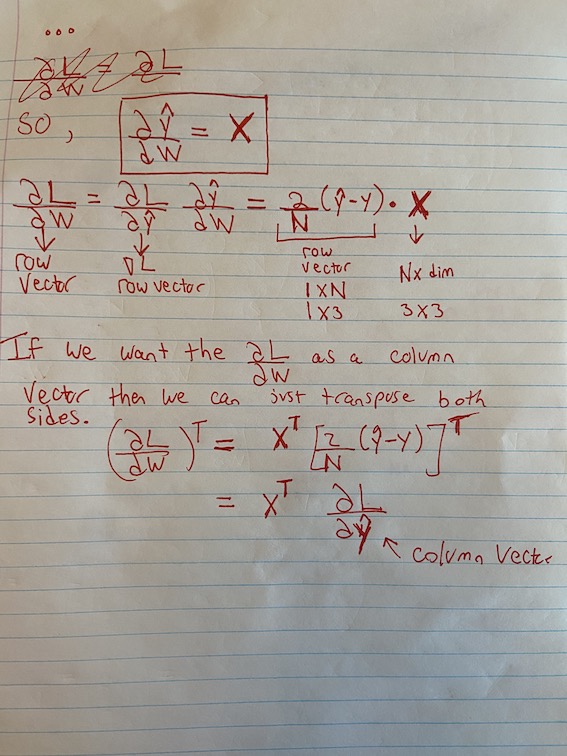 ...
∂L/∂W = ∂L
SO, ∂Ŷ/∂W = X
∂L/∂W = ∂L/∂Ŷ ∂Ŷ/∂W = 2/N (Ŷ-Y) · X
row vector
∇L row vector
row vector 1XN 1X3
Nx dim 3X3
If we want the ∂L/∂W as a column
vector then we can just transpose both
sides.
(∂L/∂W)^T = X^T [2/N (ŷ-y)]^T
= X^T ∂L/∂ŷ ← column vector